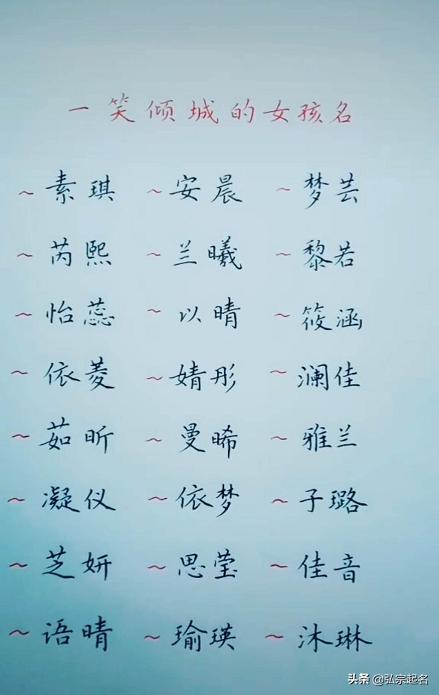 一笑倾城的女孩名
~素琪 ~安晨 ~梦芸
~芮熙 ~兰曦 ~黎若
~怡蕊 ~以晴 ~筱涵
~依菱 ~婧彤 ~澜佳
~茹昕 ~曼晞 ~雅兰
~凝仪 ~依梦 ~子璐
~芝妍 ~思莹 ~佳音
~语晴 ~瑜瑛 ~沐琳
头条 @弘宗起名